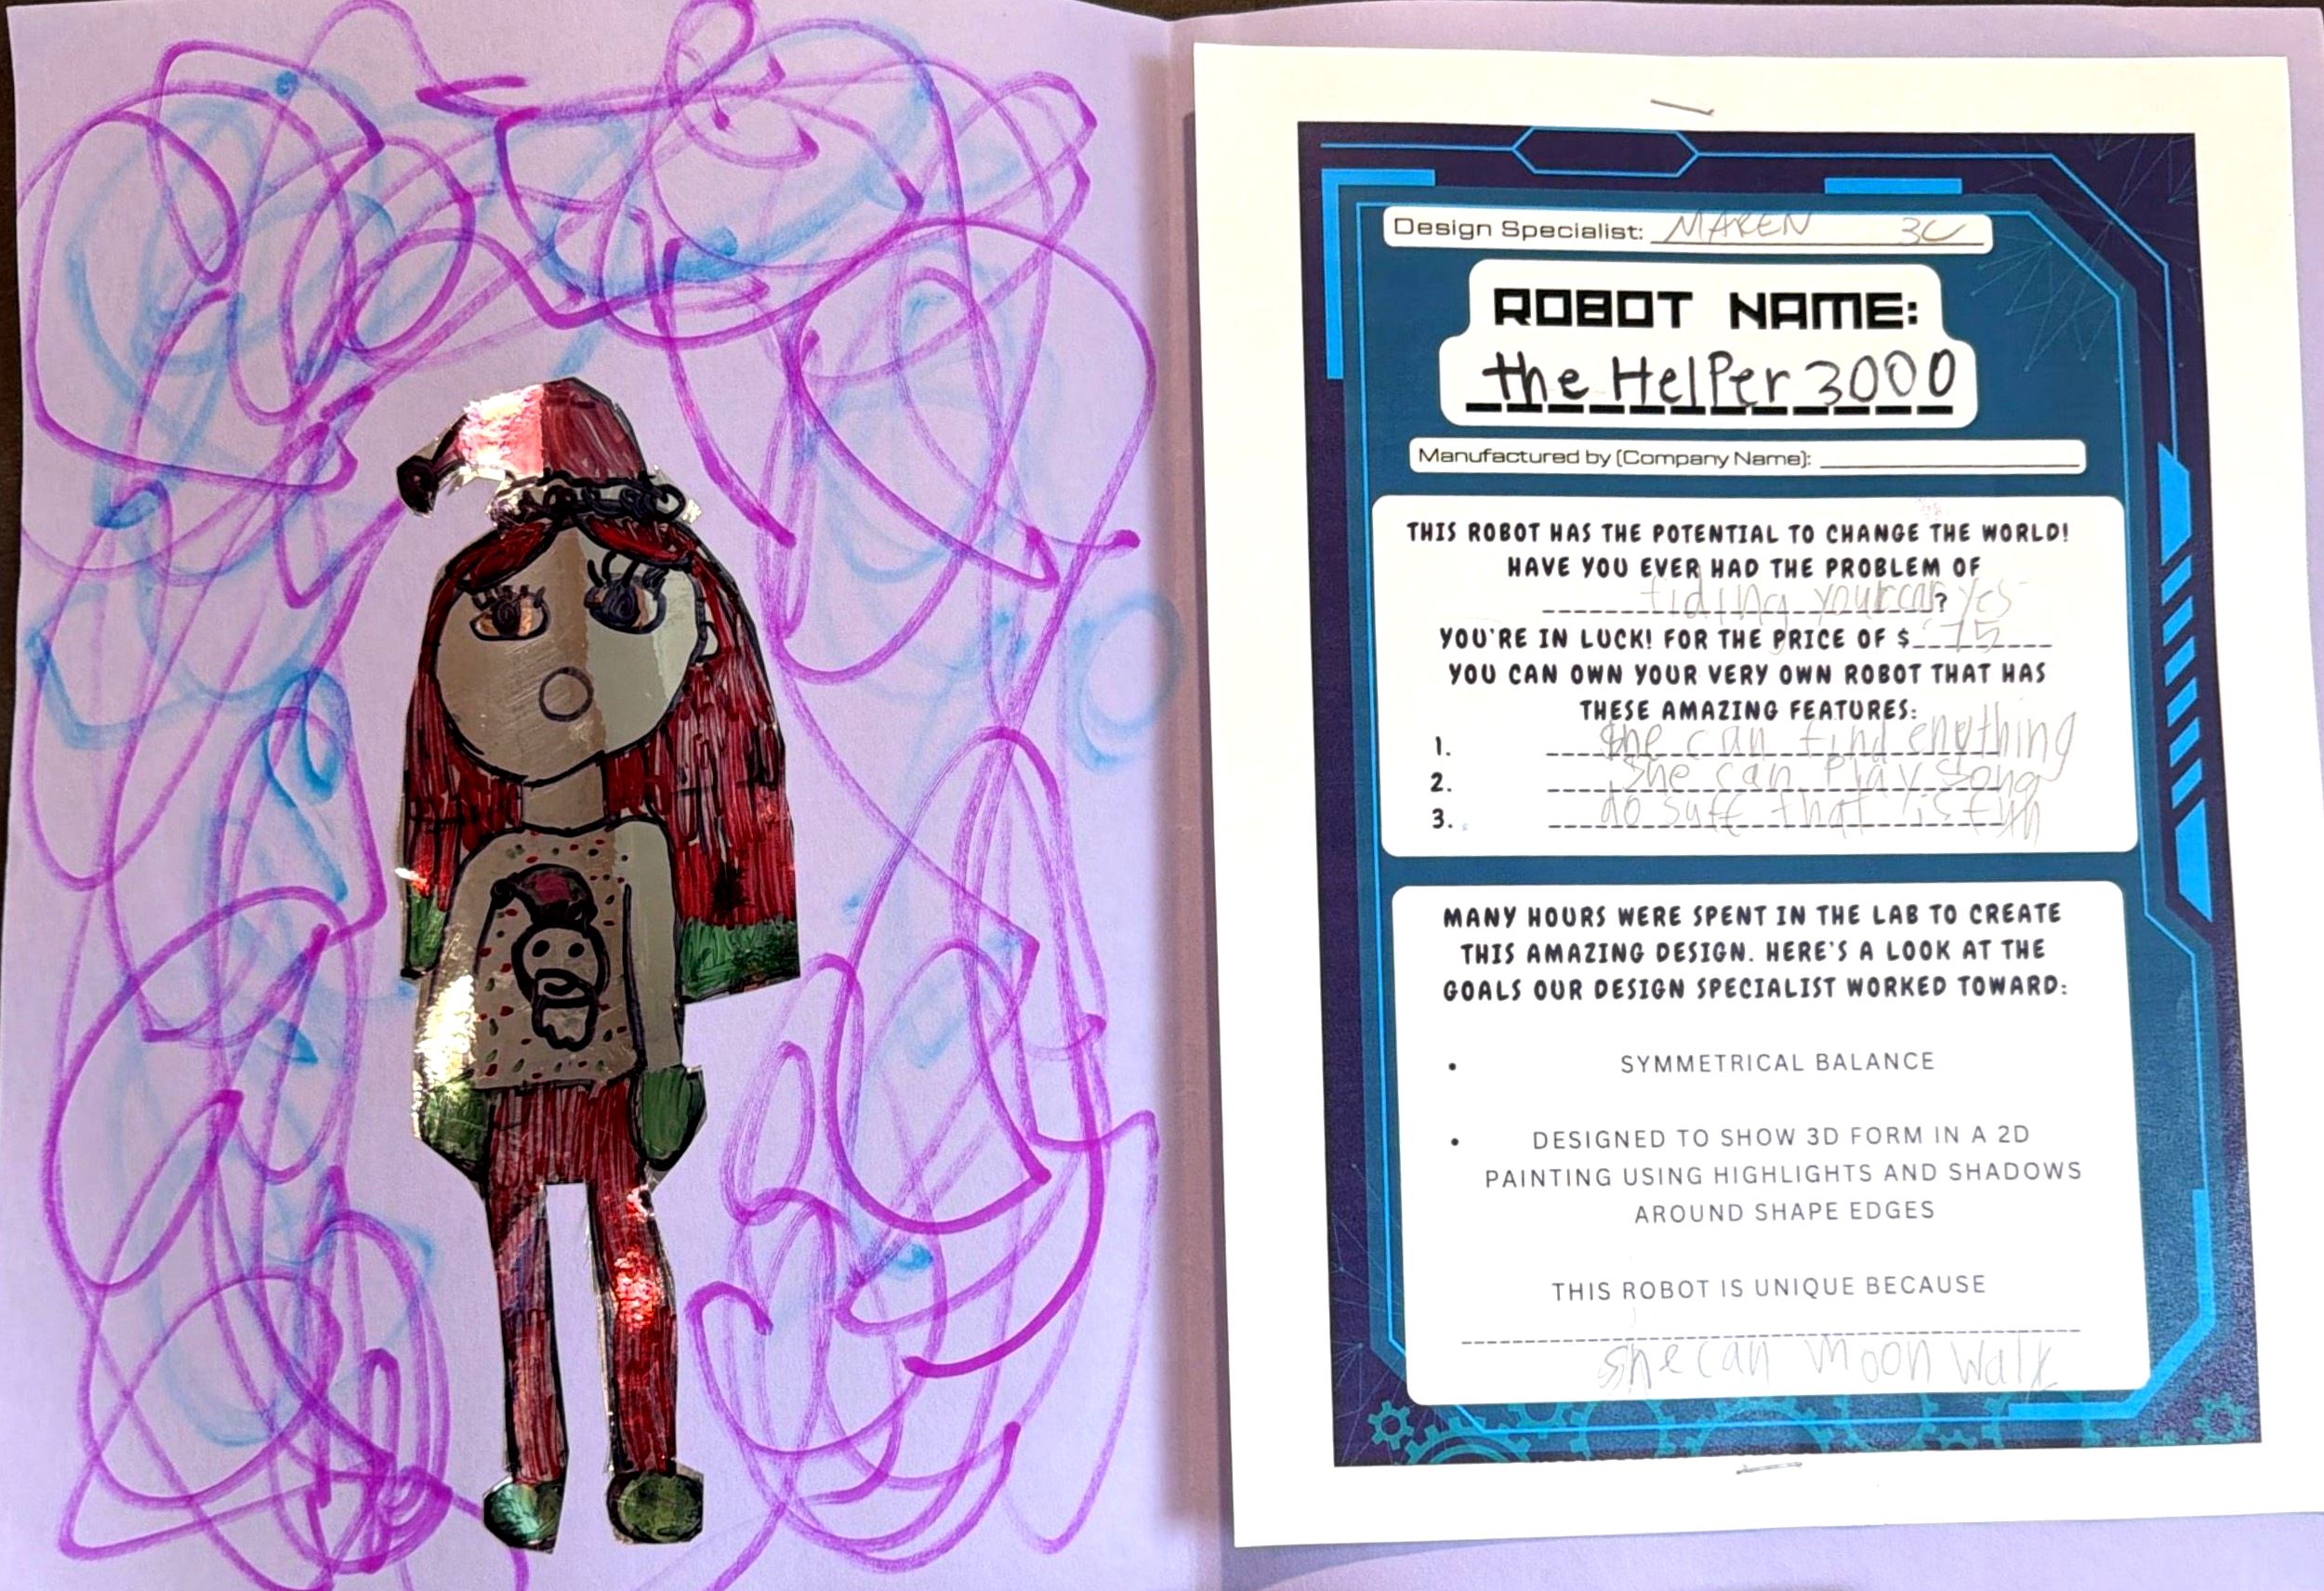 Design Specialist: MAREN 3C
ROBOT NAME:
the HelPer 3000
Manufactured by (Company Name):
THIS ROBOT HAS THE POTENTIAL TO CHANGE THE WORLD!
HAVE YOU EVER HAD THE PROBLEM OF
fiding your car? yes
YOU'RE IN LUCK! FOR THE PRICE OF $ 75
YOU CAN OWN YOUR VERY OWN ROBOT THAT HAS
THESE AMAZING FEATURES:
1. She can find enything
2. She can Play Song
3. do suff that is fun
MANY HOURS WERE SPENT IN THE LAB TO CREATE
THIS AMAZING DESIGN. HERE'S A LOOK AT THE
GOALS OUR DESIGN SPECIALIST WORKED TOWARD:
• SYMMETRICAL BALANCE
• DESIGNED TO SHOW 3D FORM IN A 2D
PAINTING USING HIGHLIGHTS AND SHADOWS
AROUND SHAPE EDGES
THIS ROBOT IS UNIQUE BECAUSE
She can moon walk